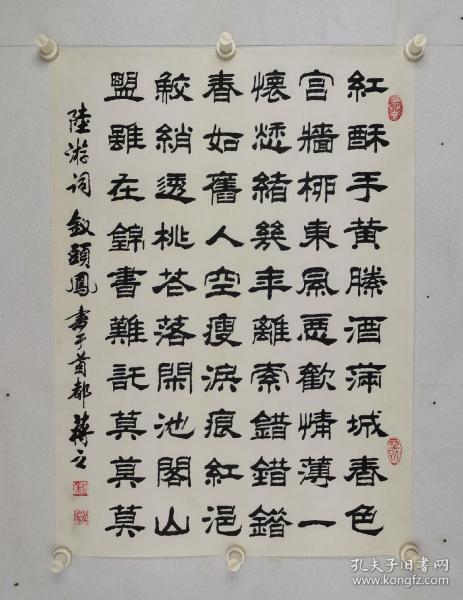 紅酥手黄縢酒滿城春色
宫牆栁東風惡歡情薄一
懷愁緒幾年離索錯錯錯
春如舊人空瘦淚痕紅浥
鮫綃透桃花落閑池閣山
盟雖在錦書難託莫莫莫
陸游词 釵頭鳳 書于首都 蔣
孔夫子旧书网
www.kongfz.com